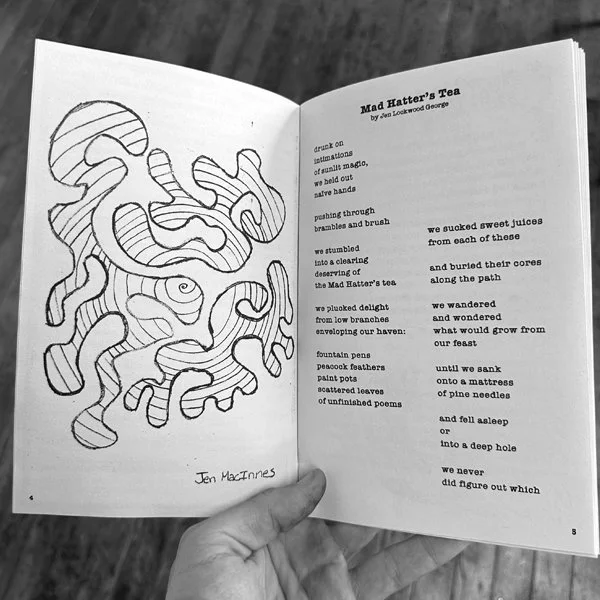 Jen MacInnes
4
Mad Hatter's Tea
by Jen Lockwood George
drunk on
intimations
of sunlit magic,
we held out
naïve hands
pushing through
brambles and brush
we stumbled
into a clearing
deserving of
the Mad Hatter's tea
we plucked delight
from low branches
enveloping our haven:
fountain pens
peacock feathers
paint pots
scattered leaves
of unfinished poems
we sucked sweet juices
from each of these
and buried their cores
along the path
we wandered
and wondered
what would grow from
our feast
until we sank
onto a mattress
of pine needles
and fell asleep
or
into a deep hole
we never
did figure out which
5